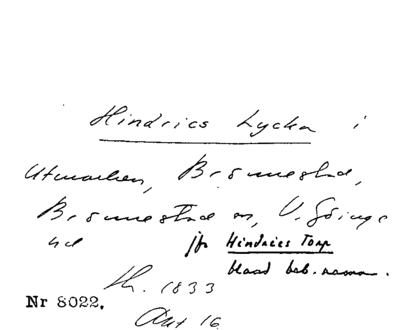 Hindrics Lycka i
Utmarken, Brömestad,
Brömestad sn, V. Göinge
hd jfr Hindrics Torp
bland beb.namn.
Lh. 1833
Nr 8022.
Akt 16